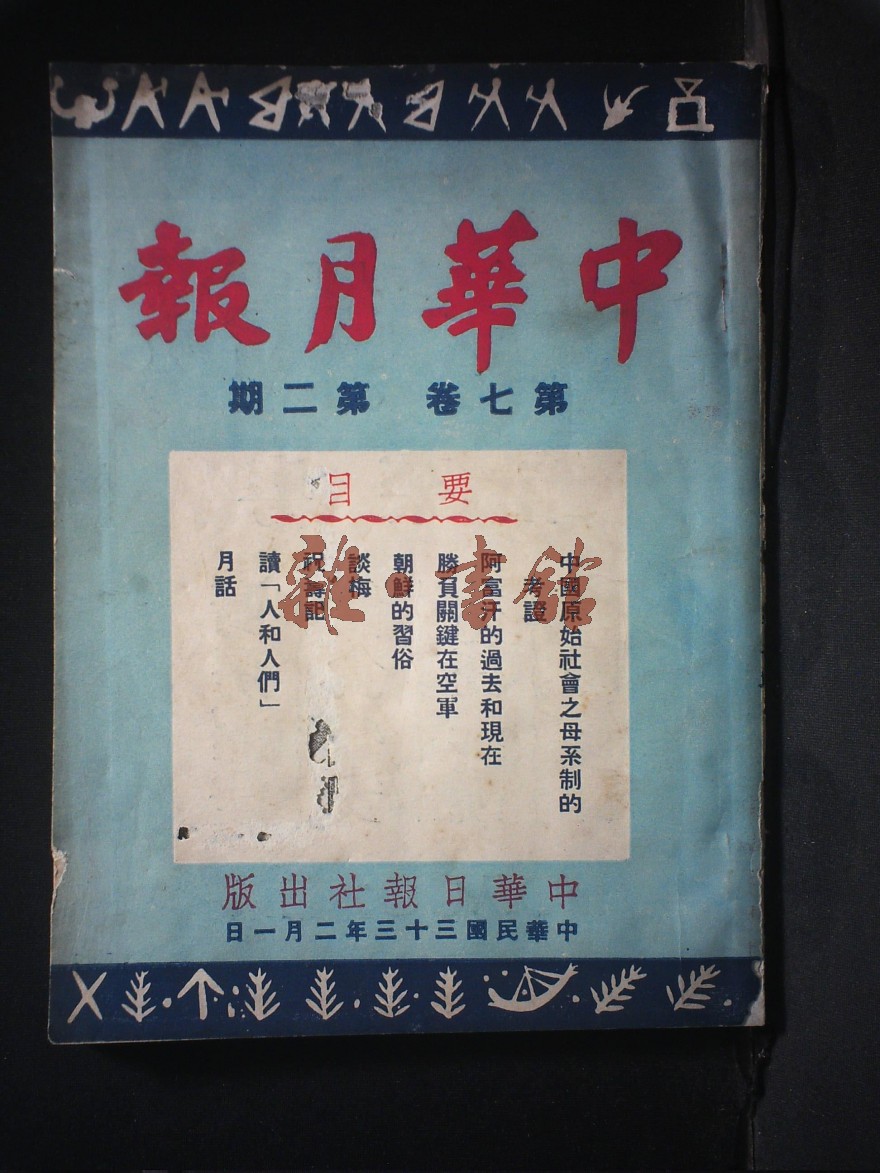 中華月報
第七卷 第二期
要目
中國原始社會之母系制的
考證
阿富汗的過去和現在
勝負關鍵在空軍
朝鮮的習俗
談梅
祝壽記
讀「人和人們」
月話
中華日報社出版
中華民國三十三年二月一日
雜·書館